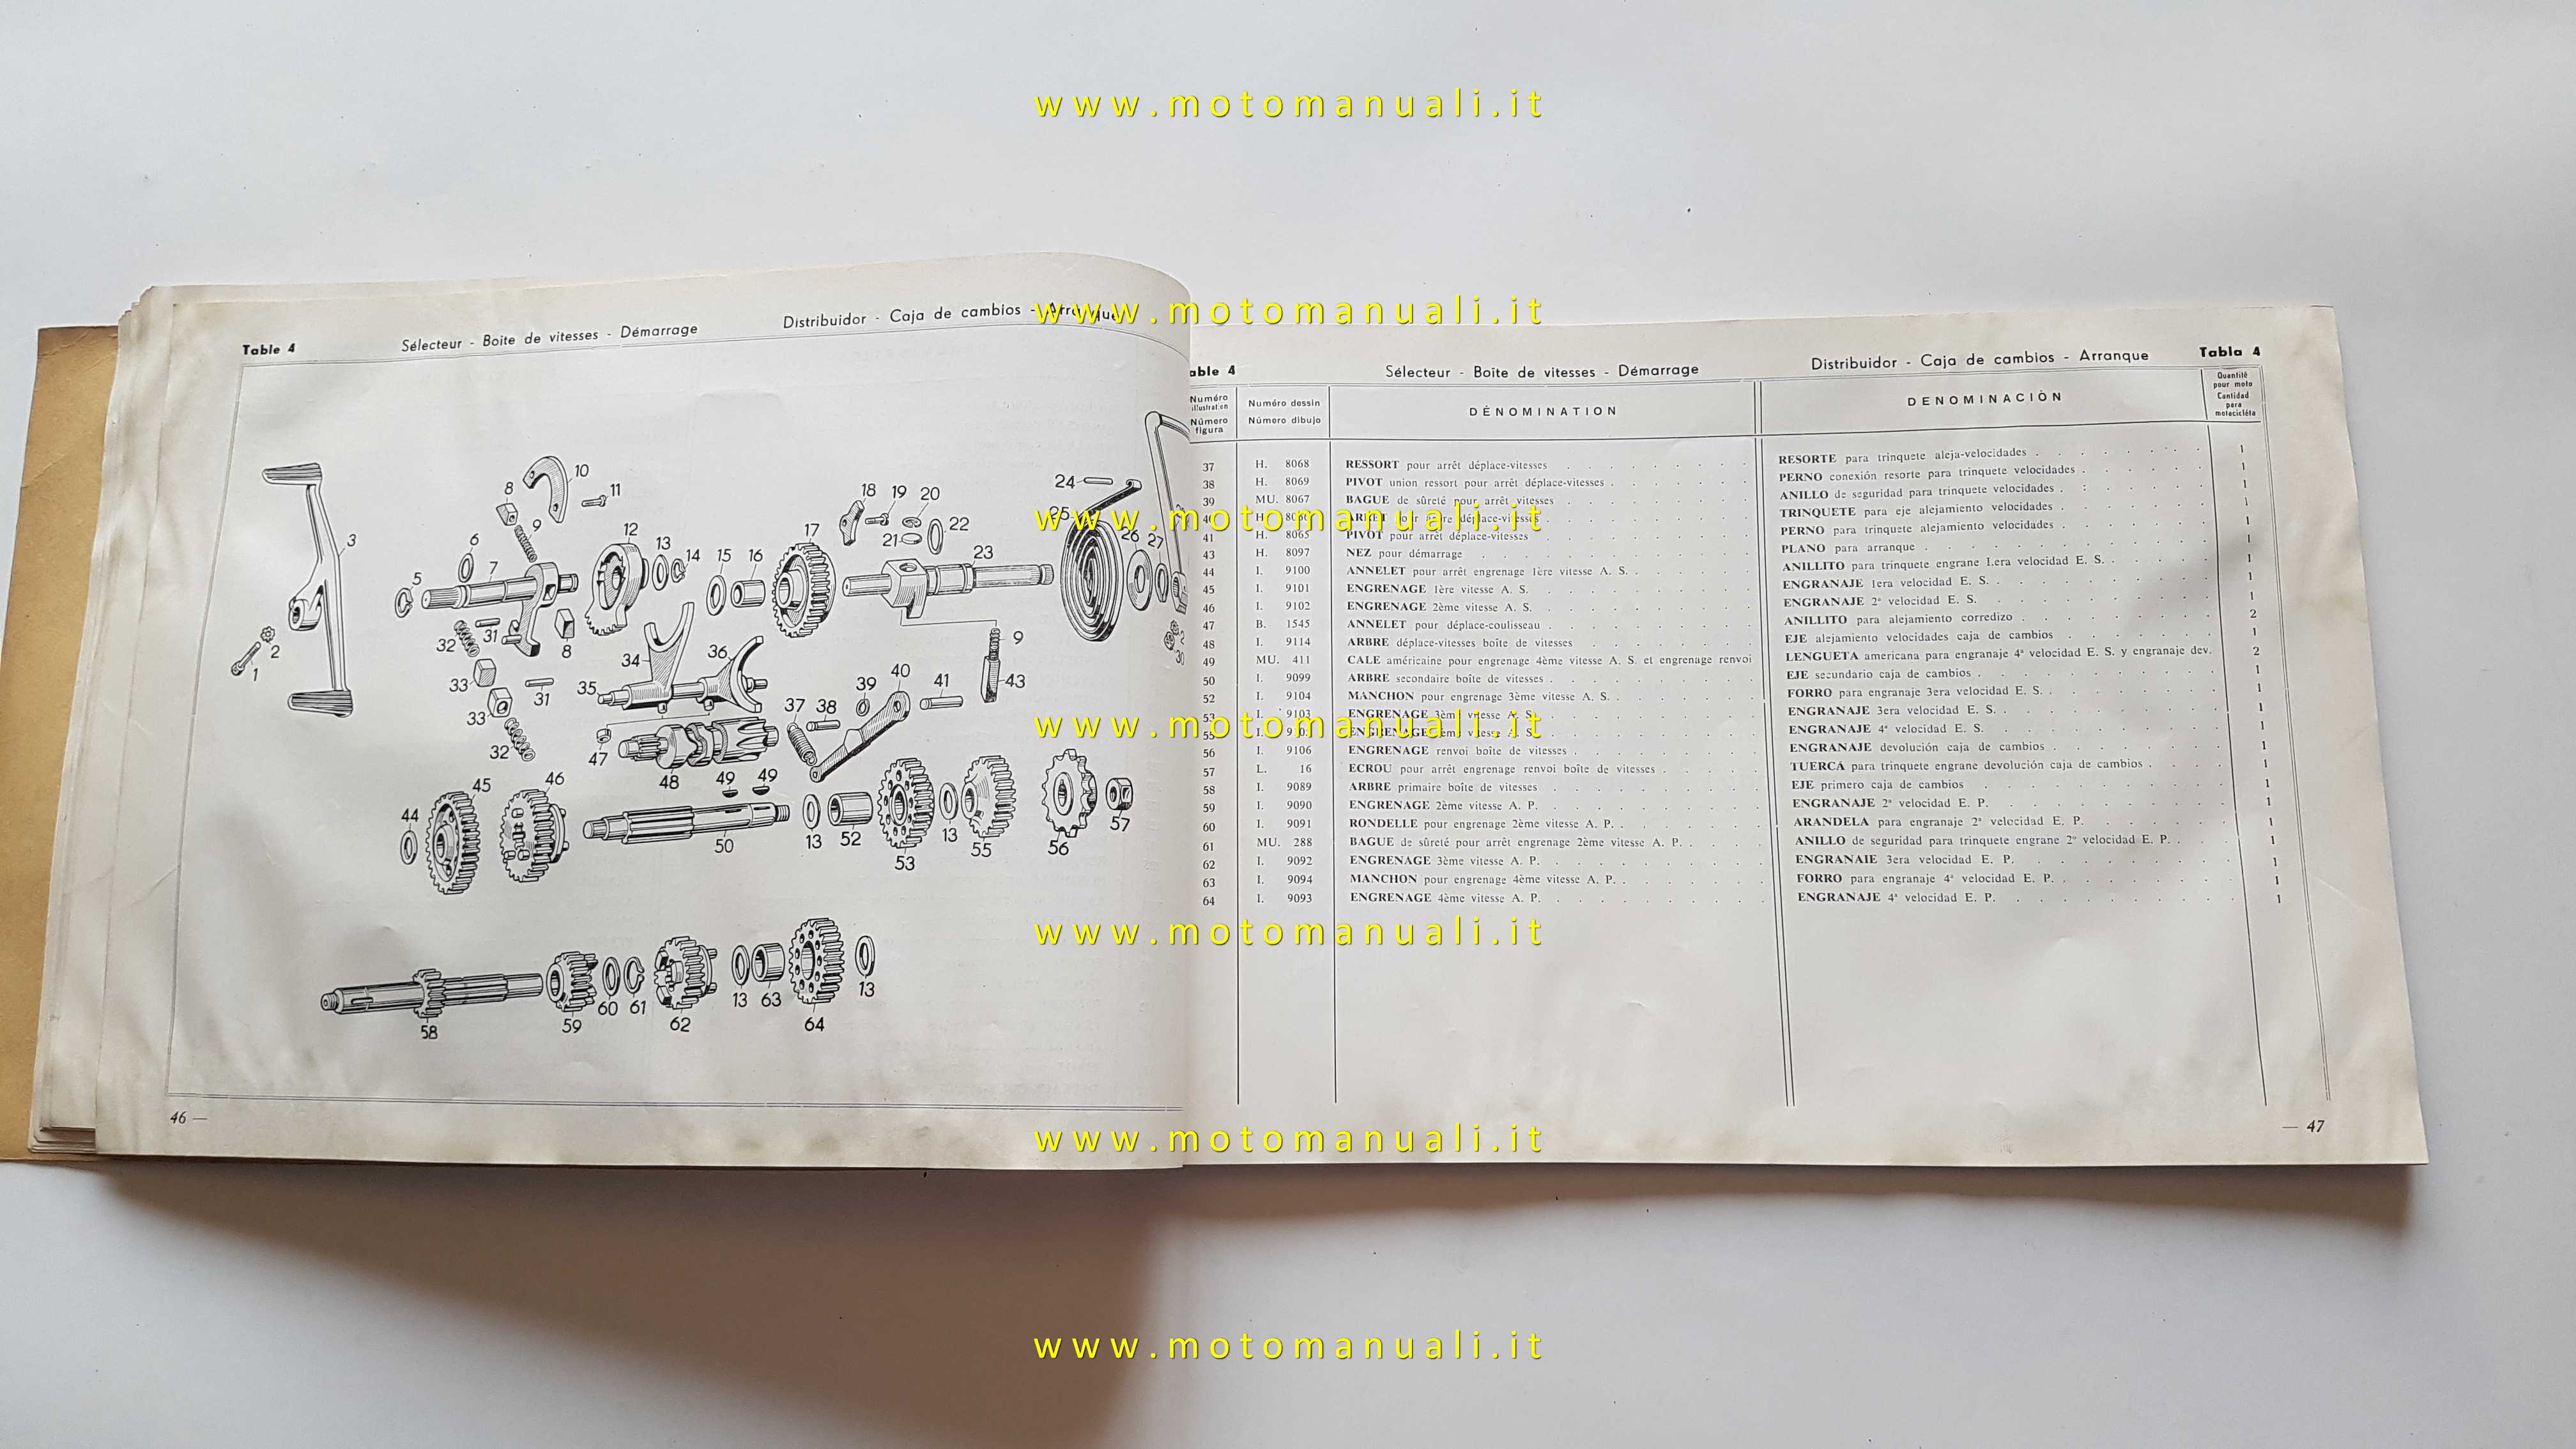 www.motomanuali.it
Table 4
Sélecteur - Boite de vitesses - Démarrage
Distribuidor - Caja de cambios -
www.motomanuali.it
10
8
11
9
12
6
7
13
14
5
3
15
16
17
18
19
20
21
22
23
24
25
26
27
30
www.motomanuali.it
2
1
32
31
8
33
31
33
32
34
35
36
9
43
37
38
39
40
41
47
48
49
49
www.motomanuali.it
44
45
46
50
13
52
53
13
55
56
57
58
59
60
61
62
13
63
64
13
www.motomanuali.it
46 —
able 4
Sélecteur - Boîte de vitesses - Démarrage
Distribuidor - Caja de cambios - Arranque
Tabla 4
Numéro
Número
figura
Numéro dessin
Número dibujo
DÉNOMINATION
DENOMINACIÒN
Quantité
pour moto
Cantidad
para
motocicléta
37 H. 8068 RESSORT pour arrêt déplace-vitesses RESORTE para trinquete aleja-velocidades 1
38 H. 8069 PIVOT union ressort pour arrêt déplace-vitesses PERNO conexión resorte para trinquete velocidades 1
39 MU. 8067 BAGUE de sûreté pour arrêt vitesses ANILLO de seguridad para trinquete velocidades 1
H. déplace-vitesses TRINQUETE para eje alejamiento velocidades 1
41 H. 8065 PIVOT pour arrêt déplace-vitesses PERNO para trinquete alejamiento velocidades 1
43 H. 8097 NEZ pour démarrage PLANO para arranque 1
44 I. 9100 ANNELET pour arrêt engrenage 1ère vitesse A. S. ANILLITO para trinquete engrane I.era velocidad E. S. 1
45 I. 9101 ENGRENAGE 1ère vitesse A. S. ENGRANAJE 1era velocidad E. S. 1
46 I. 9102 ENGRENAGE 2ème vitesse A. S. ENGRANAJE 2ª velocidad E. S. 1
47 B. 1545 ANNELET pour déplace-coulisseau ANILLITO para alejamiento corredizo 2
48 I. 9114 ARBRE déplace-vitesses boîte de vitesses EJE alejamiento velocidades caja de cambios 1
49 MU. 411 CALE américaine pour engrenage 4ème vitesse A. S. et engrenage renvoi LENGUETA americana para engranaje 4ª velocidad E. S. y engranaje dev. 2
50 I. 9099 ARBRE secondaire boîte de vitesses EJE secundario caja de cambios 1
52 I. 9104 MANCHON pour engrenage 3ème vitesse A. S. FORRO para engranaje 3era velocidad E. S. 1
53 I. 9103 ENGRENAGE 3ème vitesse A. S. ENGRANAJE 3era velocidad E. S. 1
55 I. ENGRENAGE vitesse ENGRANAJE 4ª velocidad E. S. 1
56 I. 9106 ENGRENAGE renvoi boîte de vitesses ENGRANAJE devolución caja de cambios 1
57 L. 16 ECROU pour arrêt engrenage renvoi boîte de vitesses TUERCA para trinquete engrane devolución caja de cambios 1
58 I. 9089 ARBRE primaire boîte de vitesses EJE primero caja de cambios 1
59 I. 9090 ENGRENAGE 2ème vitesse A. P. ENGRANAJE 2ª velocidad E. P. 1
60 I. 9091 RONDELLE pour engrenage 2ème vitesse A. P. ARANDELA para engranaje 2ª velocidad E. P. 1
61 MU. 288 BAGUE de sûreté pour arrêt engrenage 2ème vitesse A. P. ANILLO de seguridad para trinquete engrane 2º velocidad E. P. 1
62 I. 9092 ENGRENAGE 3ème vitesse A. P. ENGRANAIE 3era velocidad E. P. 1
63 I. 9094 MANCHON pour engrenage 4ème vitesse A. P. FORRO para engranaje 4ª velocidad E. P. 1
64 I. 9093 ENGRENAGE 4ème vitesse A. P. ENGRANAJE 4ª velocidad E. P. 1
— 47
www.motomanuali.it
www.motomanuali.it